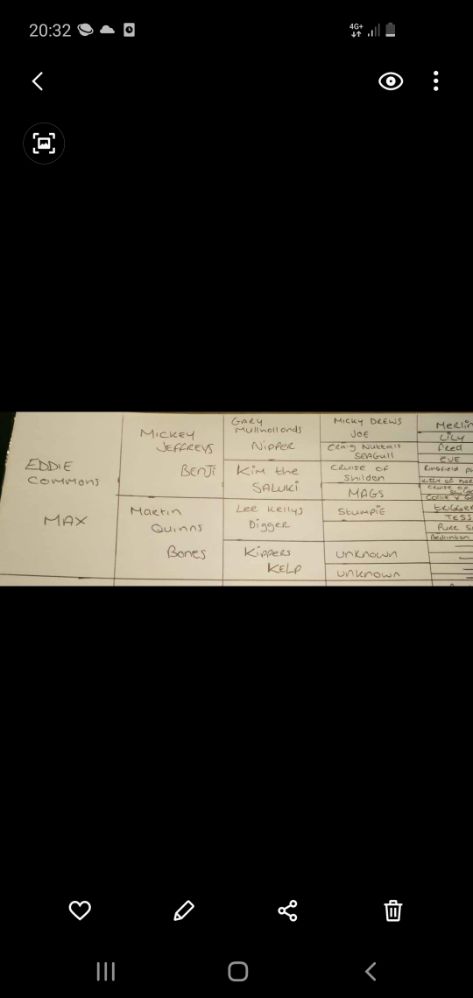 20:32
4G+
EDDIE
COMMONS
MAX
MICKEY
JEFFREYS
BENJI
Martin
Quinns
Bones
GARY
Mullhollands
NIPPER
Kim the
SALUKI
Lee Kellys
Digger
Kippers
KELP
MICKY DREWS
JOE
Craig Nuttall
SEAGULL
Cruise of
Shildon
MAGS
STUMPIE
unknown
unknown
Merlin
LILY
Fred
EVE
TESS